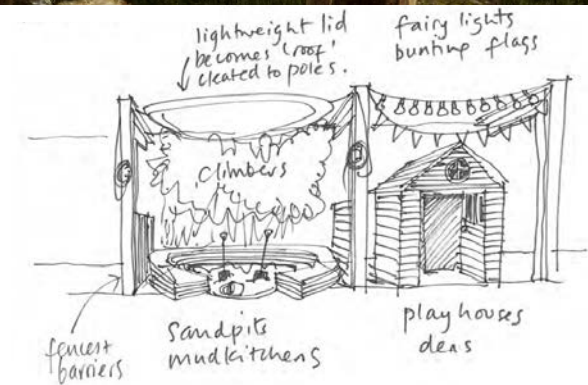 lightweight lid
becomes 'roof'
cleated to poles.
fairy lights
bunting flags
climbers
fences +
barriers
sandpits
mudkitchens
playhouses
dens